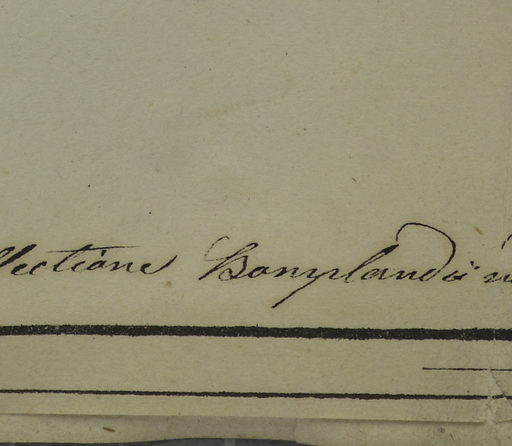 llectione Bonplandii